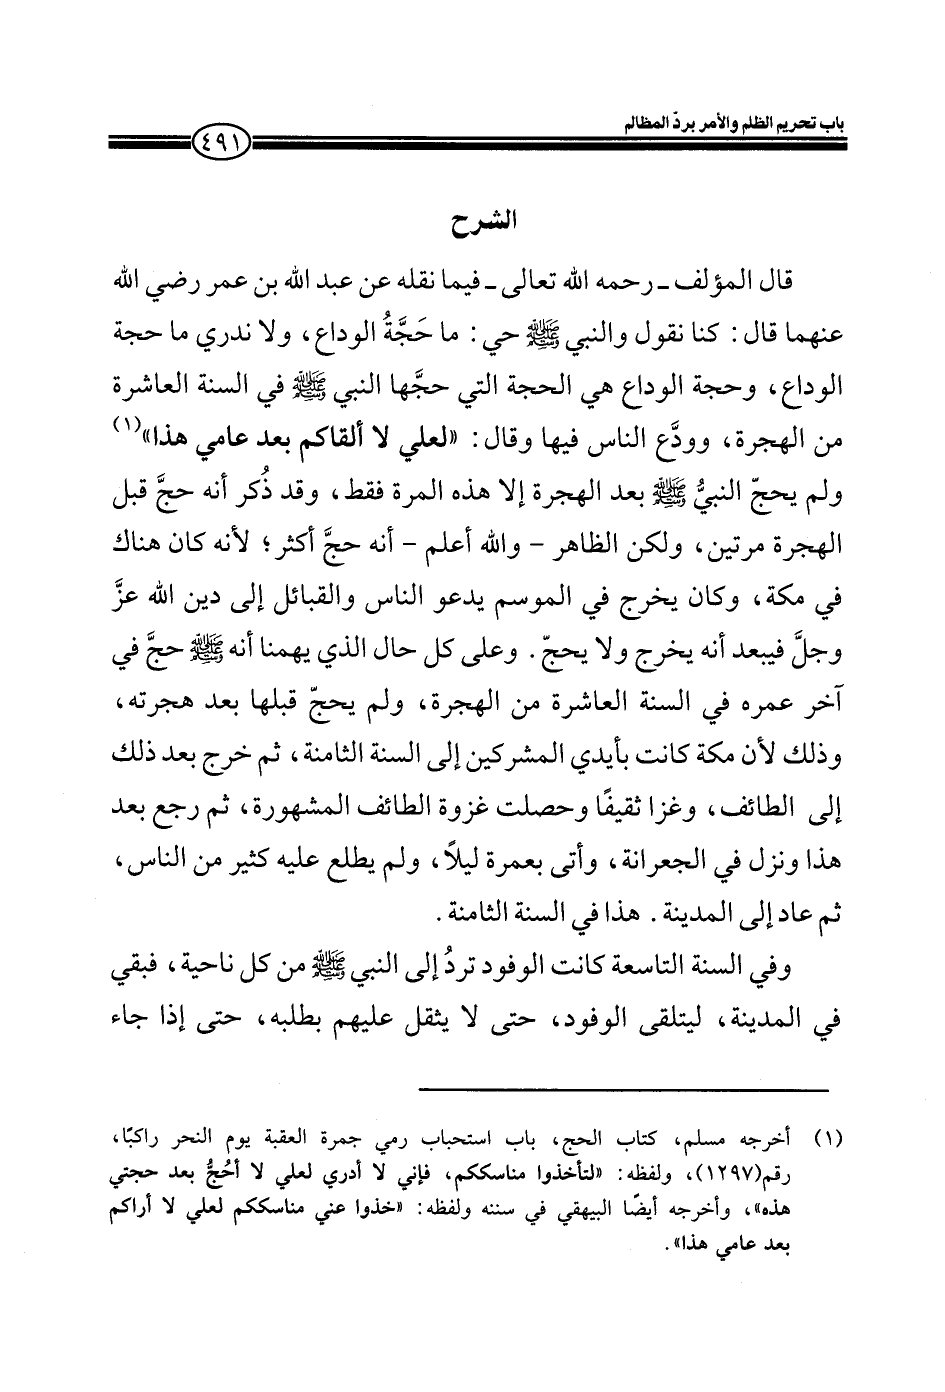 باب تحريم الظلم والأمر بردّ المظالم
٤٩١
الشرح
قال المؤلف ـ رحمه الله تعالى ـ فيما نقله عن عبد الله بن عمر رضي الله
عنهما قال: كنا نقول والنبي ﷺ حي: ما حَجَّةُ الوداع، ولا ندري ما حجة
الوداع، وحجة الوداع هي الحجة التي حجَّها النبي ﷺ في السنة العاشرة
من الهجرة، وودَّع الناس فيها وقال: «لعلي لا ألقاكم بعد عامي هذا»(١)
ولم يحجّ النبيُّ ﷺ بعد الهجرة إلا هذه المرة فقط، وقد ذُكر أنه حجَّ قبل
الهجرة مرتين، ولكن الظاهر - والله أعلم - أنه حجَّ أكثر؛ لأنه كان هناك
في مكة، وكان يخرج في الموسم يدعو الناس والقبائل إلى دين الله عزَّ
وجلَّ فيبعد أنه يخرج ولا يحجّ. وعلى كل حال الذي يهمنا أنه ﷺ حجَّ في
آخر عمره في السنة العاشرة من الهجرة، ولم يحجّ قبلها بعد هجرته،
وذلك لأن مكة كانت بأيدي المشركين إلى السنة الثامنة، ثم خرج بعد ذلك
إلى الطائف، وغزا ثقيفًا وحصلت غزوة الطائف المشهورة، ثم رجع بعد
هذا ونزل في الجعرانة، وأتى بعمرة ليلاً، ولم يطلع عليه كثير من الناس،
ثم عاد إلى المدينة. هذا في السنة الثامنة.
وفي السنة التاسعة كانت الوفود تردُ إلى النبي ﷺ من كل ناحية، فبقي
في المدينة، ليتلقى الوفود، حتى لا يثقل عليهم بطلبه، حتى إذا جاء
(١) أخرجه مسلم، كتاب الحج، باب استحباب رمي جمرة العقبة يوم النحر راكبًا،
رقم(١٢٩٧)، ولفظه: «لتأخذوا مناسككم، فإني لا أدري لعلي لا أحُجُّ بعد حجتي
هذه»، وأخرجه أيضًا البيهقي في سننه ولفظه: «خذوا عني مناسككم لعلي لا أراكم
بعد عامي هذا».